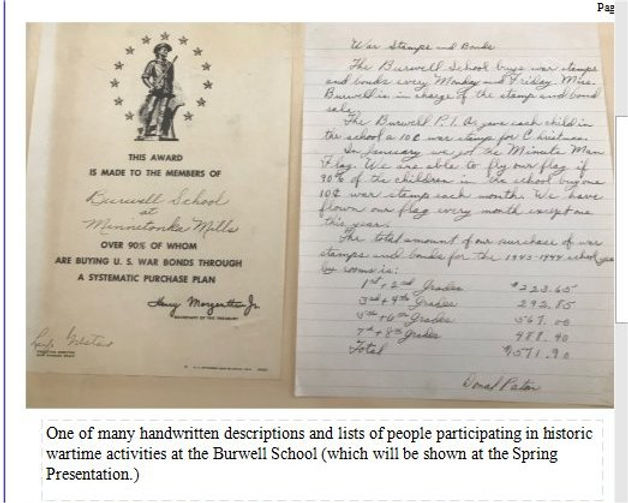 Pag
THIS AWARD
IS MADE TO THE MEMBERS OF
Burwell School
at
Minnetonka Mills
OVER 90% OF WHOM
ARE BUYING U. S. WAR BONDS THROUGH
A SYSTEMATIC PURCHASE PLAN
Henry Morgenthau Jr.
SECRETARY OF THE TREASURY
War Stamps and Bonds
The Burwell School buys war stamps
and bonds every Monday and Friday. Mrs.
Burwell is in charge of the stamp and bond
sale.
The Burwell P.T.A. gave each child in
the school a 10¢ war stamp for Christmas.
In January we got the Minute Man
Flag. We are able to fly our flag if
90% of the children in the school buy one
10¢ war stamp each month. We have
flown our flag every month except one
this year.
The total amount of our purchase of war
stamps and bonds for the 1943-1944 school year
by rooms is:
1st + 2nd Grades $223.65
3rd + 4th Grades 292.85
5th + 6th Grades 567.00
7th + 8th Grades 488.40
Total $1571.90
Donal Paton
One of many handwritten descriptions and lists of people participating in historic
wartime activities at the Burwell School (which will be shown at the Spring
Presentation.)